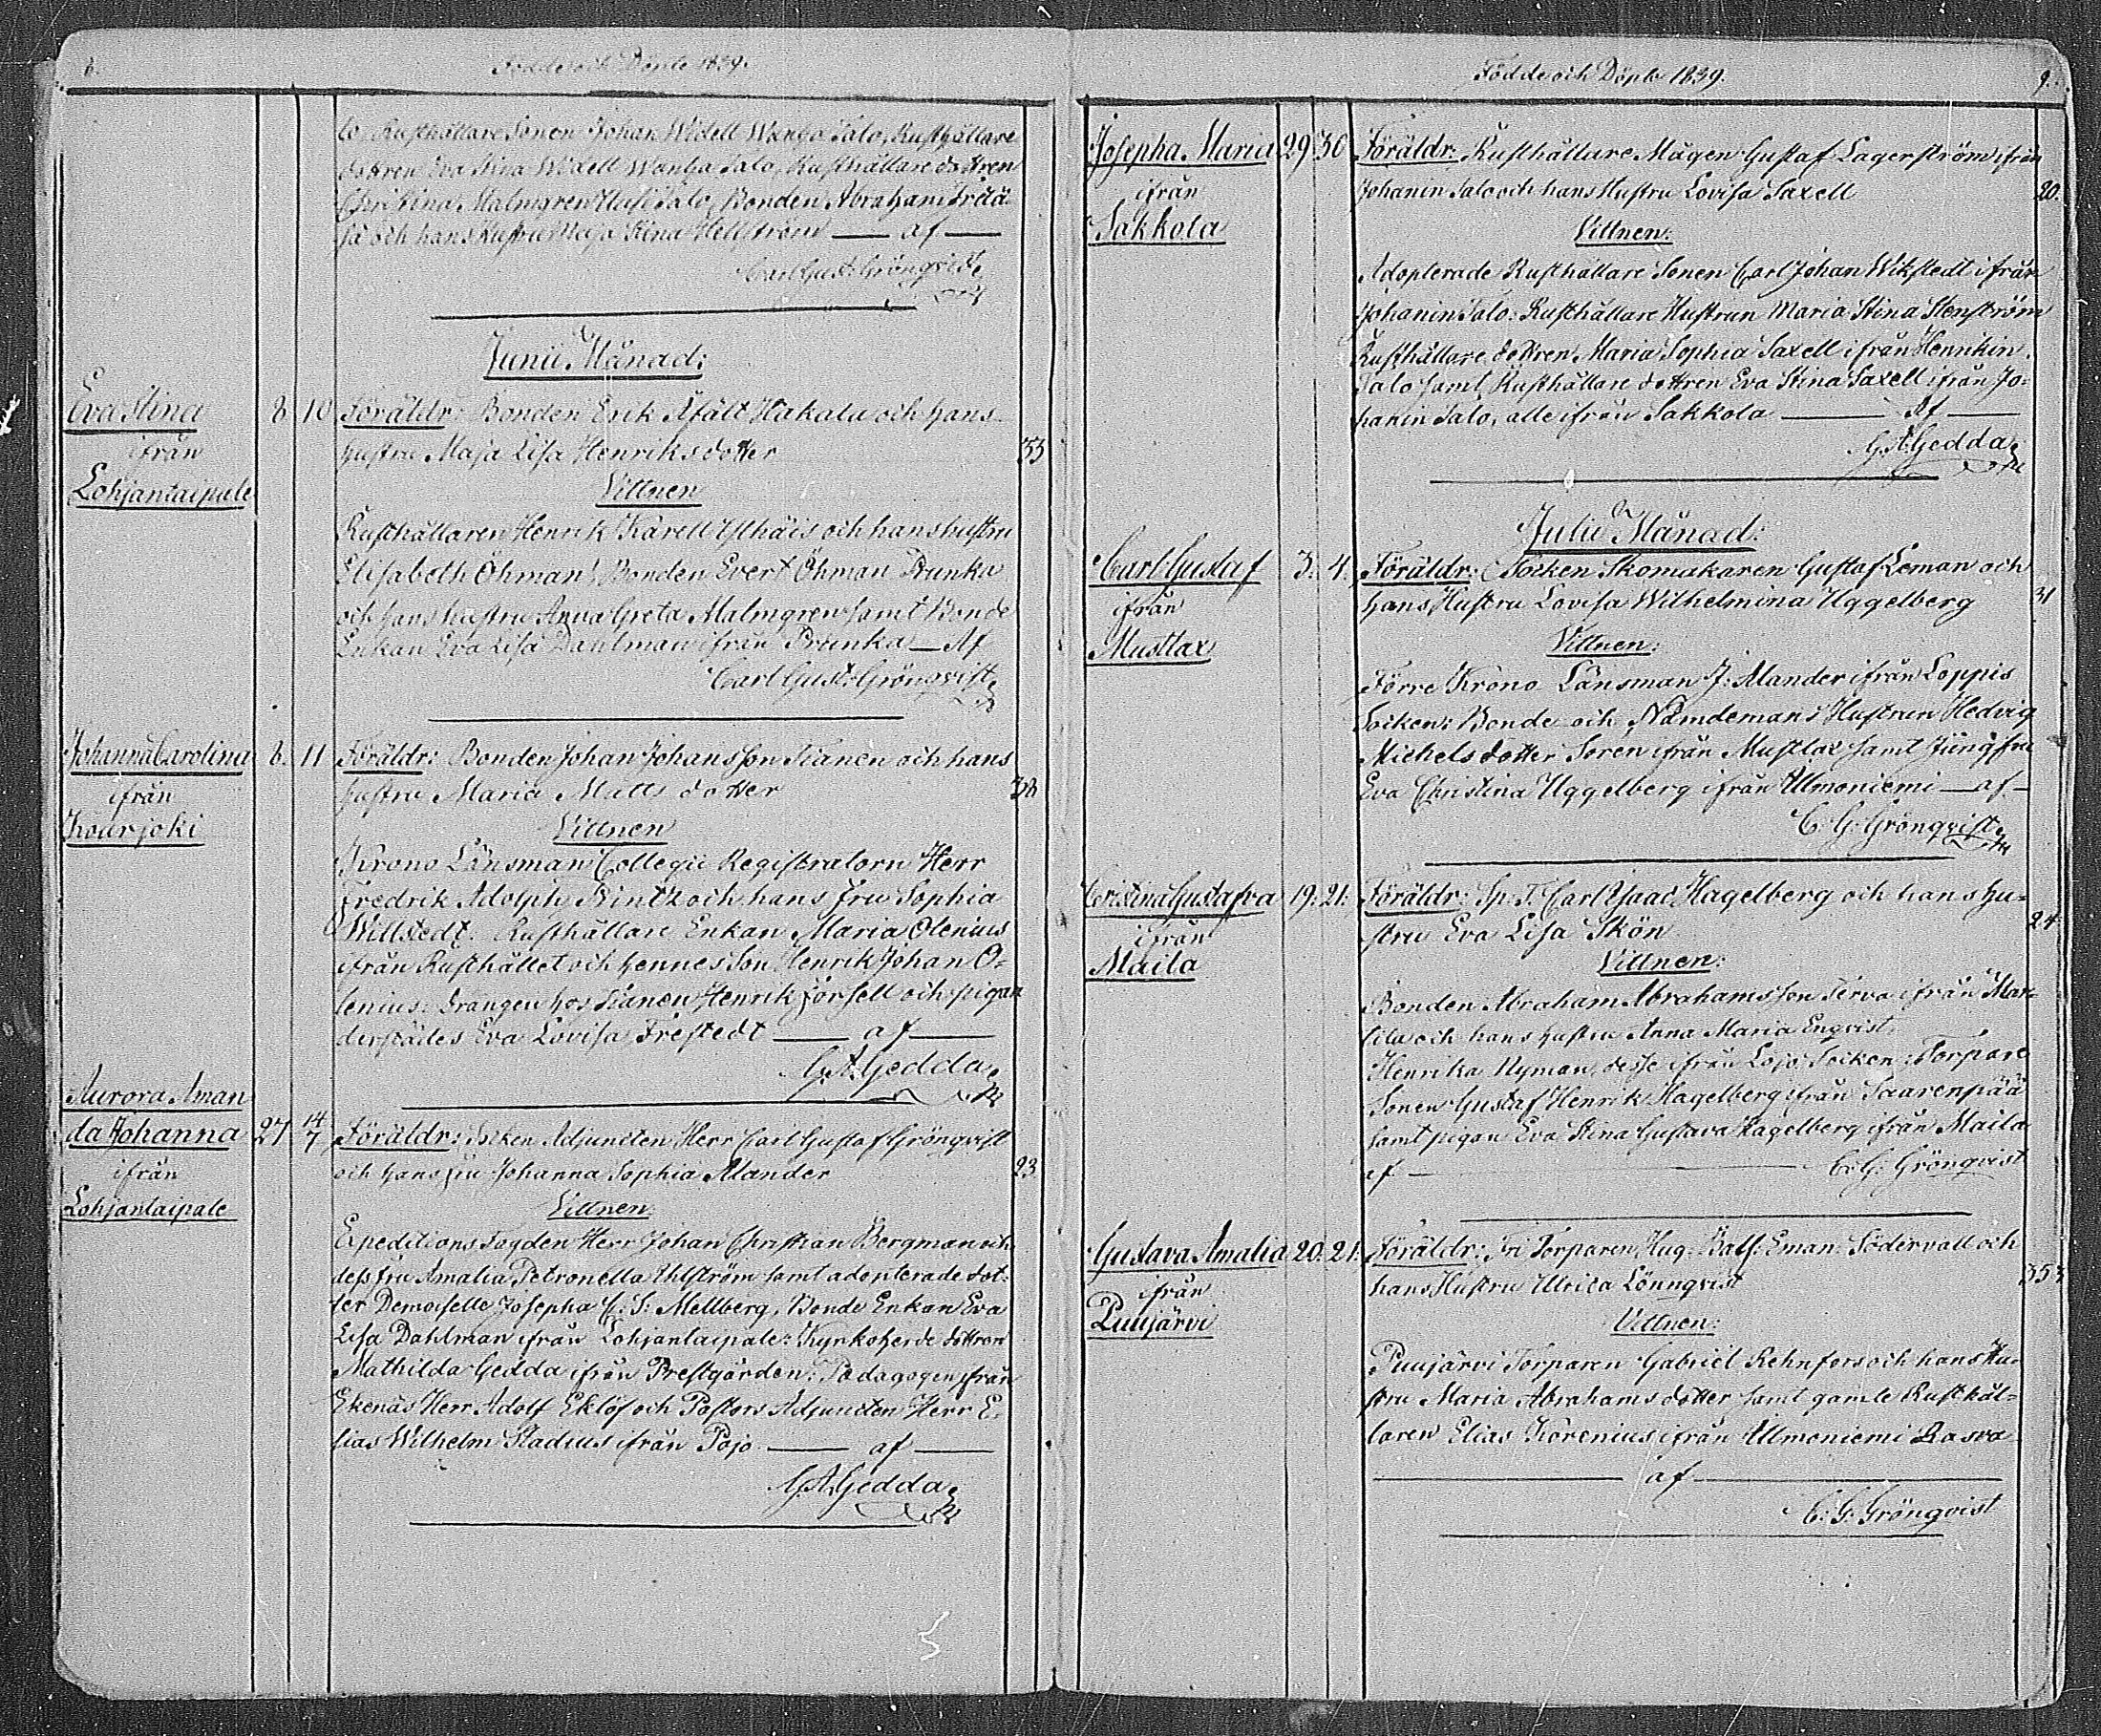 8.
Födde och Döpte 1839.
lo Rusthållare Sonen Johan Widell Wanha Talo, Rusthållare
dottren Eva Stina Widell Wanha Talo, Rusthållare dottren
Christina Malmgren Uusi Talo, Bonden Abraham
så och hans hustru Maja Stina Hellström — af —
Carl Gust: Grönqvist
Junii Månad:
Eva Stina
ifrån
Lohjantaipale
8. 10 Föräldr: Bonden Erik Kjält Hakala och hans
hustru Maja Lisa Henriksdotter
33
Vittnen
Rusthållaren Henrik Karell Isthäis och hans hustru
Elisabeth Öhman, Bonden Evert Öhman Prunka
och hans hustru Anna Greta Malmgren samt Bonde
Enkan Eva Lisa Dahlman ifrån Prunka — Af
Carl Gust: Grönqvist
Johanna Carolina
ifrån
Kourjoki
6. 11 Föräldr: Bonden Johan Johansson Tianen och hans
hustru Maria Matts dotter
38
Vittnen
Krono Länsman Collegii Registratorn Herr
Fredrik Adolph Printz och hans Fru Sophia
Willstedt. Rusthållare Enkan Maria Olenius
ifrån Rusthållet och hennes Son Henrik Johan O-
lenius: drängen hos Tianen Henrik Forsell och pigan
derstädes Eva Lovisa Frestedt — af —
G. A. Gedda
Aurora Aman
da Johanna
ifrån
Lohjantaipale
27 14/7 Föräldr: Socken Adjuncten Herr Carl Gustaf Grönqvist
och hans fru Johanna Sophia Alander
23
Vittnen
Expeditions Fogden Herr Johan Christian Bergman och
dess fru Amalia Petronella Uhlström samt adopterade dot-
ter Demoiselle Josepha C. S. Mellberg, Bonde Enkan Eva
Lisa Dahlman ifrån Lohjantaipale: Kyrkoherde dottren
Mathilda Gedda ifrån Prestgården: Pædagogen ifrån
Ekenäs Herr Adolf Eklöf och Pastors Adjuncten Herr E-
lias Wilhelm Stadius ifrån Pojo — af —
G. A. Gedda
Födde och Döpte 1839.
9.
Josepha Maria
ifrån
Sakkola
29 30 Föräldr: Rusthållare Mågen Gustaf Lagerström ifrån
Johanin Talo och hans Hustru Lovisa Saxell
20.
Vittnen:
Adopterade Rusthållare Sonen Carl Johan Wikstedt ifrån
Johanin Talo: Rusthållare Hustrun Maria Stina Stenström
Rusthållare dottren Maria Sophia Saxell ifrån Henrikin
Talo samt Rusthållare dottren Eva Stina Saxell ifrån Jo-
hanin Talo, alle ifrån Sakkola — Af —
G. A. Gedda
Julii Månad:
Carl Gustaf
ifrån
Musttax
3. 4. Föräldr: Socken Skomakaren Gustaf Leman och
hans Hustru Lovisa Wilhelmina Uggelberg
31
Vittnen:
Förre Krono Länsman J: Alander ifrån Loppis
Socken: Bonde och Nämdemans Hustrun Hedvig
Michelsdotter Soren ifrån Mustlax samt Jungfru
Eva Christina Uggelberg ifrån Ulmoniemi — af —
C. G. Grönqvist
Cristina Gustafva
ifrån
Maila
19. 21. Föräldr: Sp. T. Carl Isaac Hagelberg och hans hu-
stru Eva Lisa Skön
24
Vittnen:
Bonden Abraham Abrahamsson Terva ifrån Mar-
tila och hans hustru Anna Maria Enqvist,
Henrika Nyman, desse ifrån Lojo Socken: Torpare
Sonen Gustaf Henrik Hagelberg ifrån Saarenpää
samt pigan Eva Stina Gustava Hagelberg ifrån Maila
af — C. G: Grönqvist
Gustava Amalia
ifrån
Puujärvi
20. 21. Föräldr: Fri Torparen Hug. Balt: Eman: Södervall och
hans Hustru Ulrica Lönnqvist
35
Vittnen:
Puujärvi Torparen Gabriel Rehnfors och hans Hu-
stru Maria Abrahamsdotter samt gamle Rusthål-
laren Elias Korenius ifrån Ulmoniemi Rasva
— af —
C. G: Grönqvist